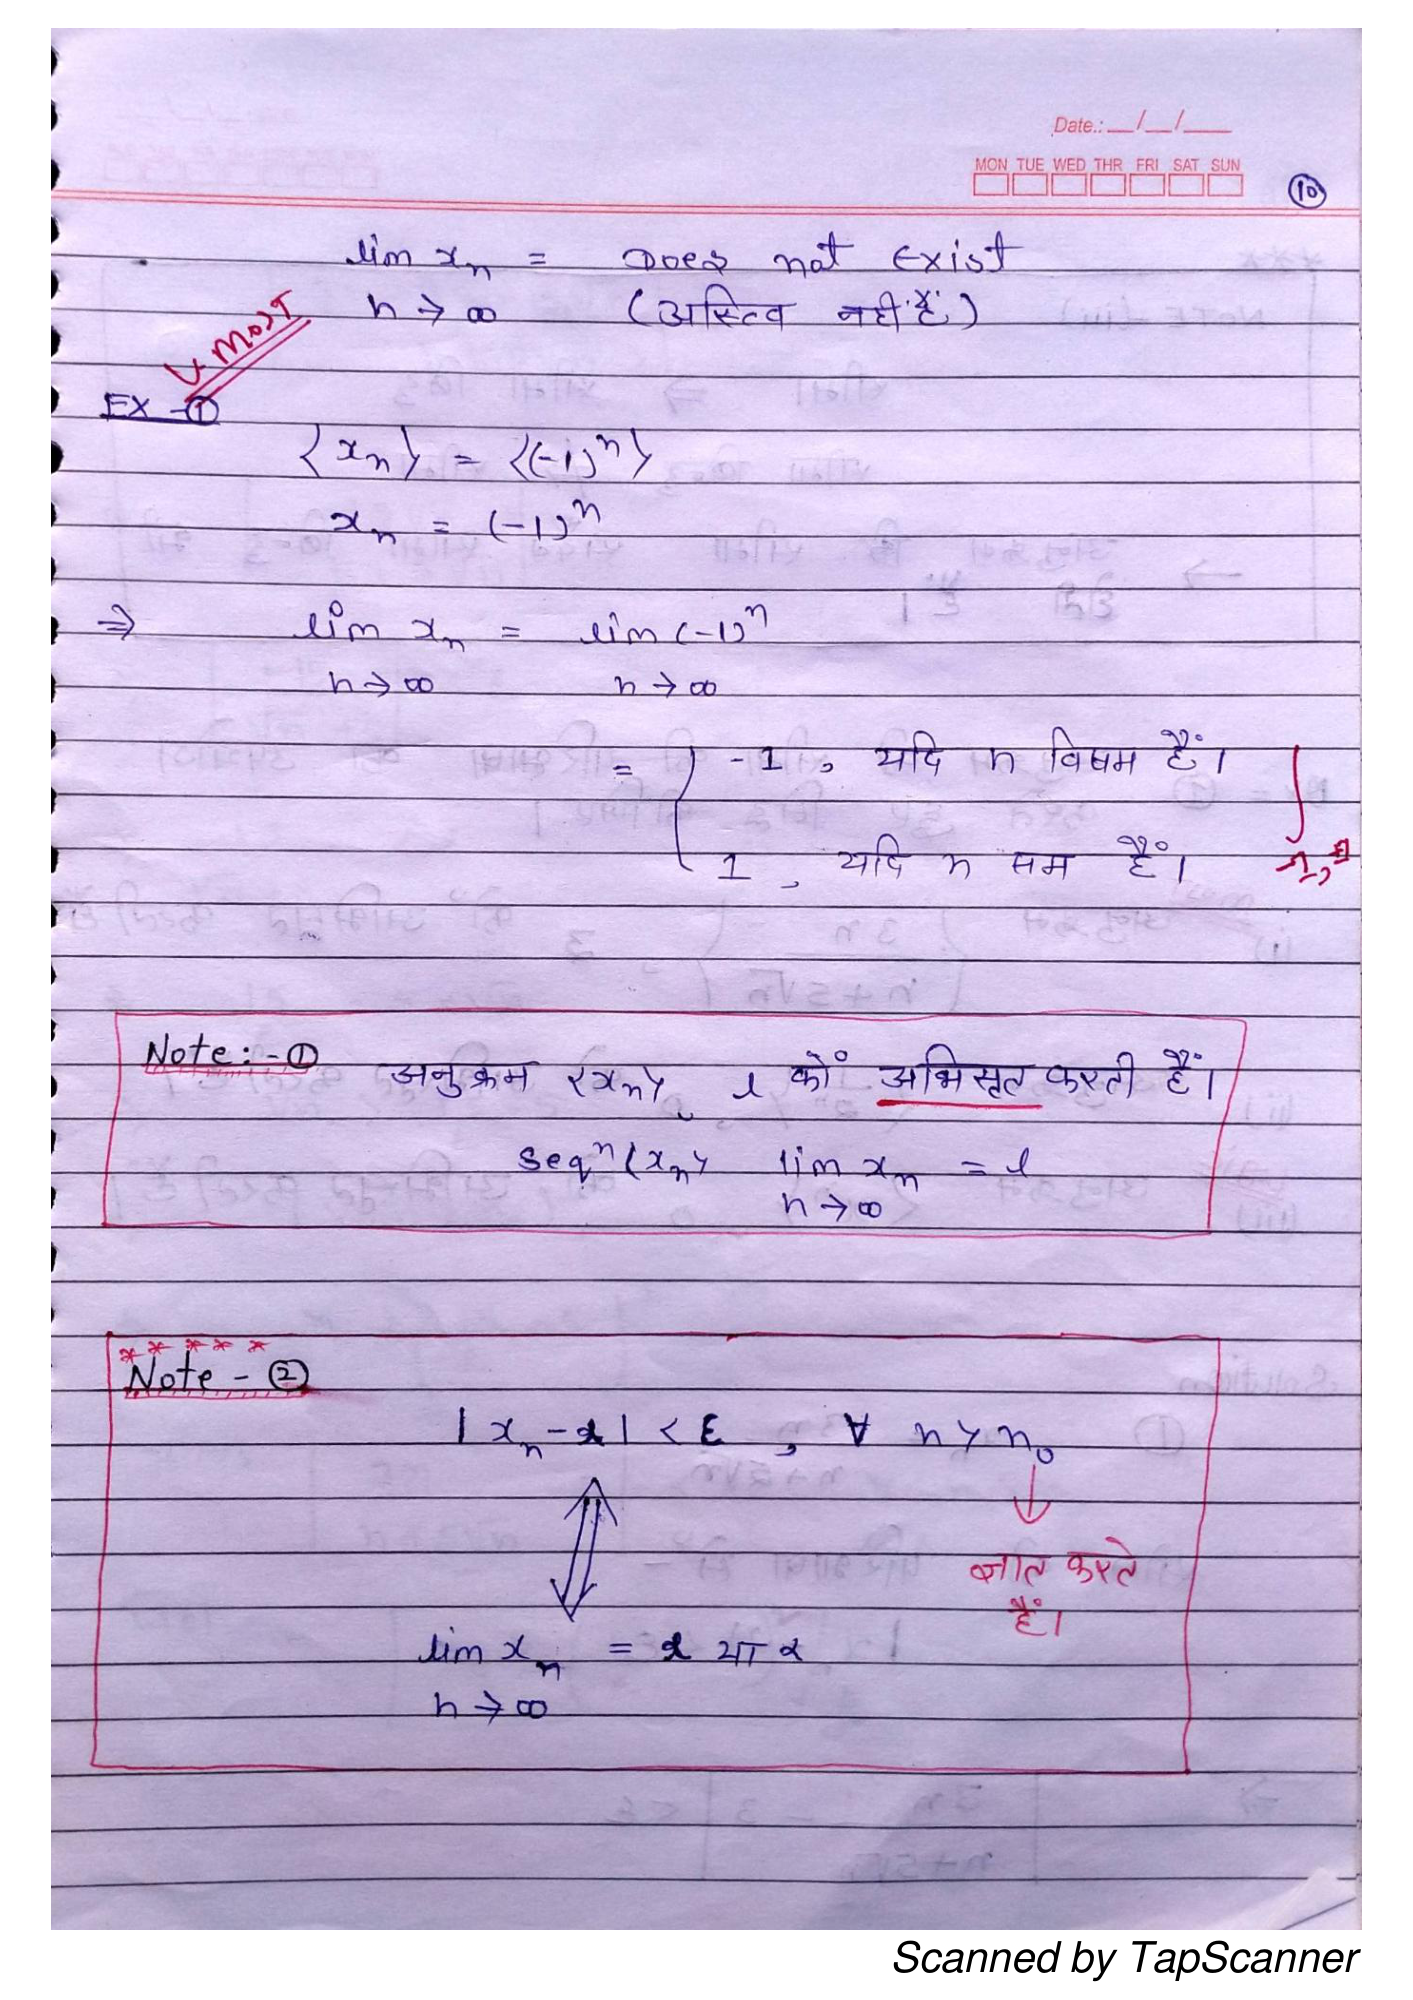 Date.: __/__/___
MON TUE WED THR FRI SAT SUN
10
lim xₙ = Does not Exist
n→∞ (अस्तित्व नहीं हैं)
V. Most
EX -①
⟨xₙ⟩ = ⟨(-1)ⁿ⟩
xₙ = (-1)ⁿ
⇒ lim xₙ = lim (-1)ⁿ
n→∞ n→∞
= { -1, यदि n विषम हैं।
1, यदि n सम हैं।
Note:-①
अनुक्रम ⟨xₙ⟩, l कों अभिसृत करती हैं।
seqⁿ ⟨xₙ⟩ lim xₙ = l
n→∞
* * * * *
Note - ②
|xₙ - l| < ε , ∀ n > n₀
⇕ ↓
ज्ञात करते
हैं।
lim xₙ = l या α
n→∞
Scanned by TapScanner